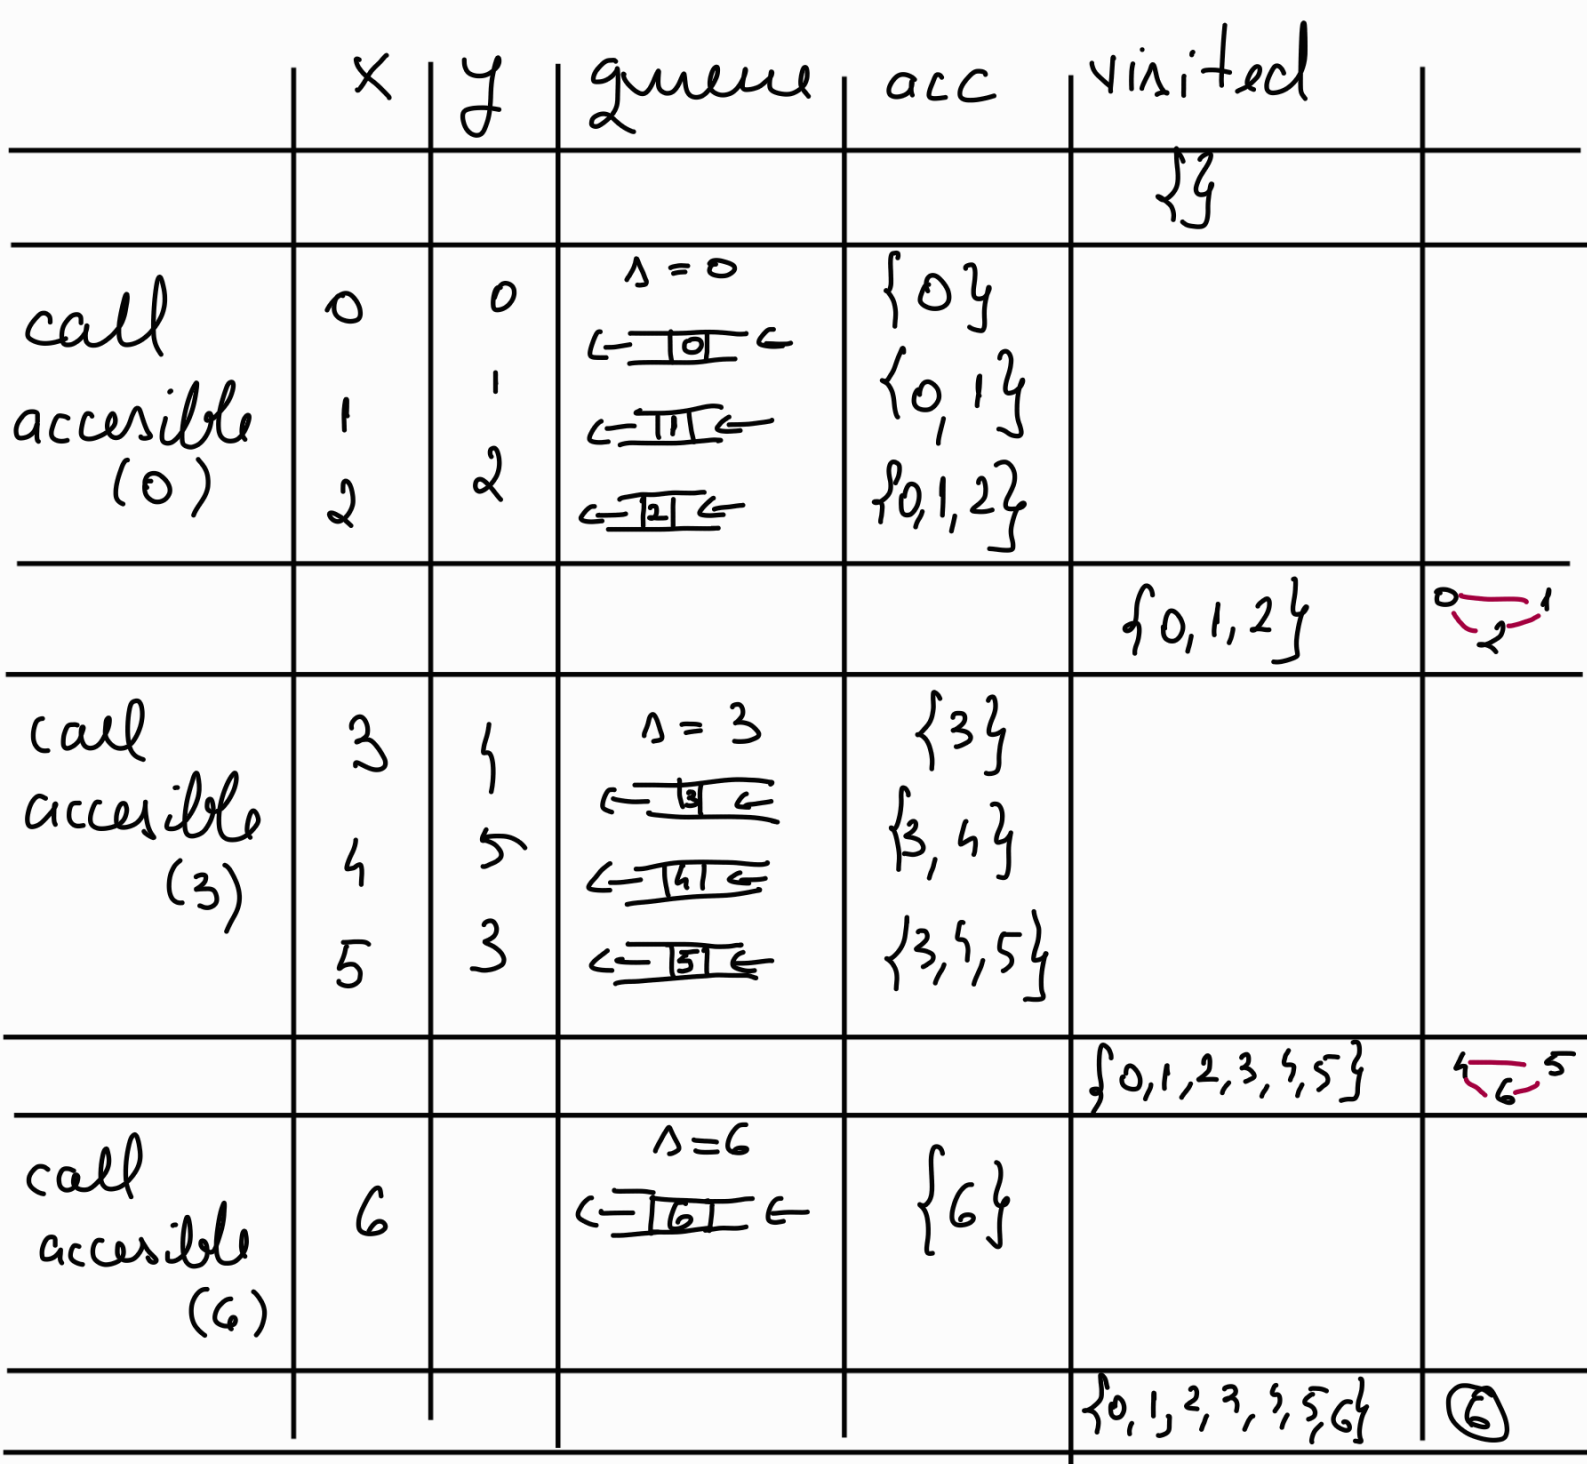 x y queue acc visited
{}
call accesible (0)
0 0 s = 0 {0}
0
1 1 1 {0, 1}
2 2 2 {0,1,2}
{0,1,2} 0 1 2
call accesible (3)
3 4 s = 3 {3}
3
4 5 4 {3, 4}
5 3 5 {3,4,5}
{0,1,2,3,4,5} 4 5 6
call accesible (6)
6 s=6 {6}
6
{0,1,2,3,4,5,6} 6